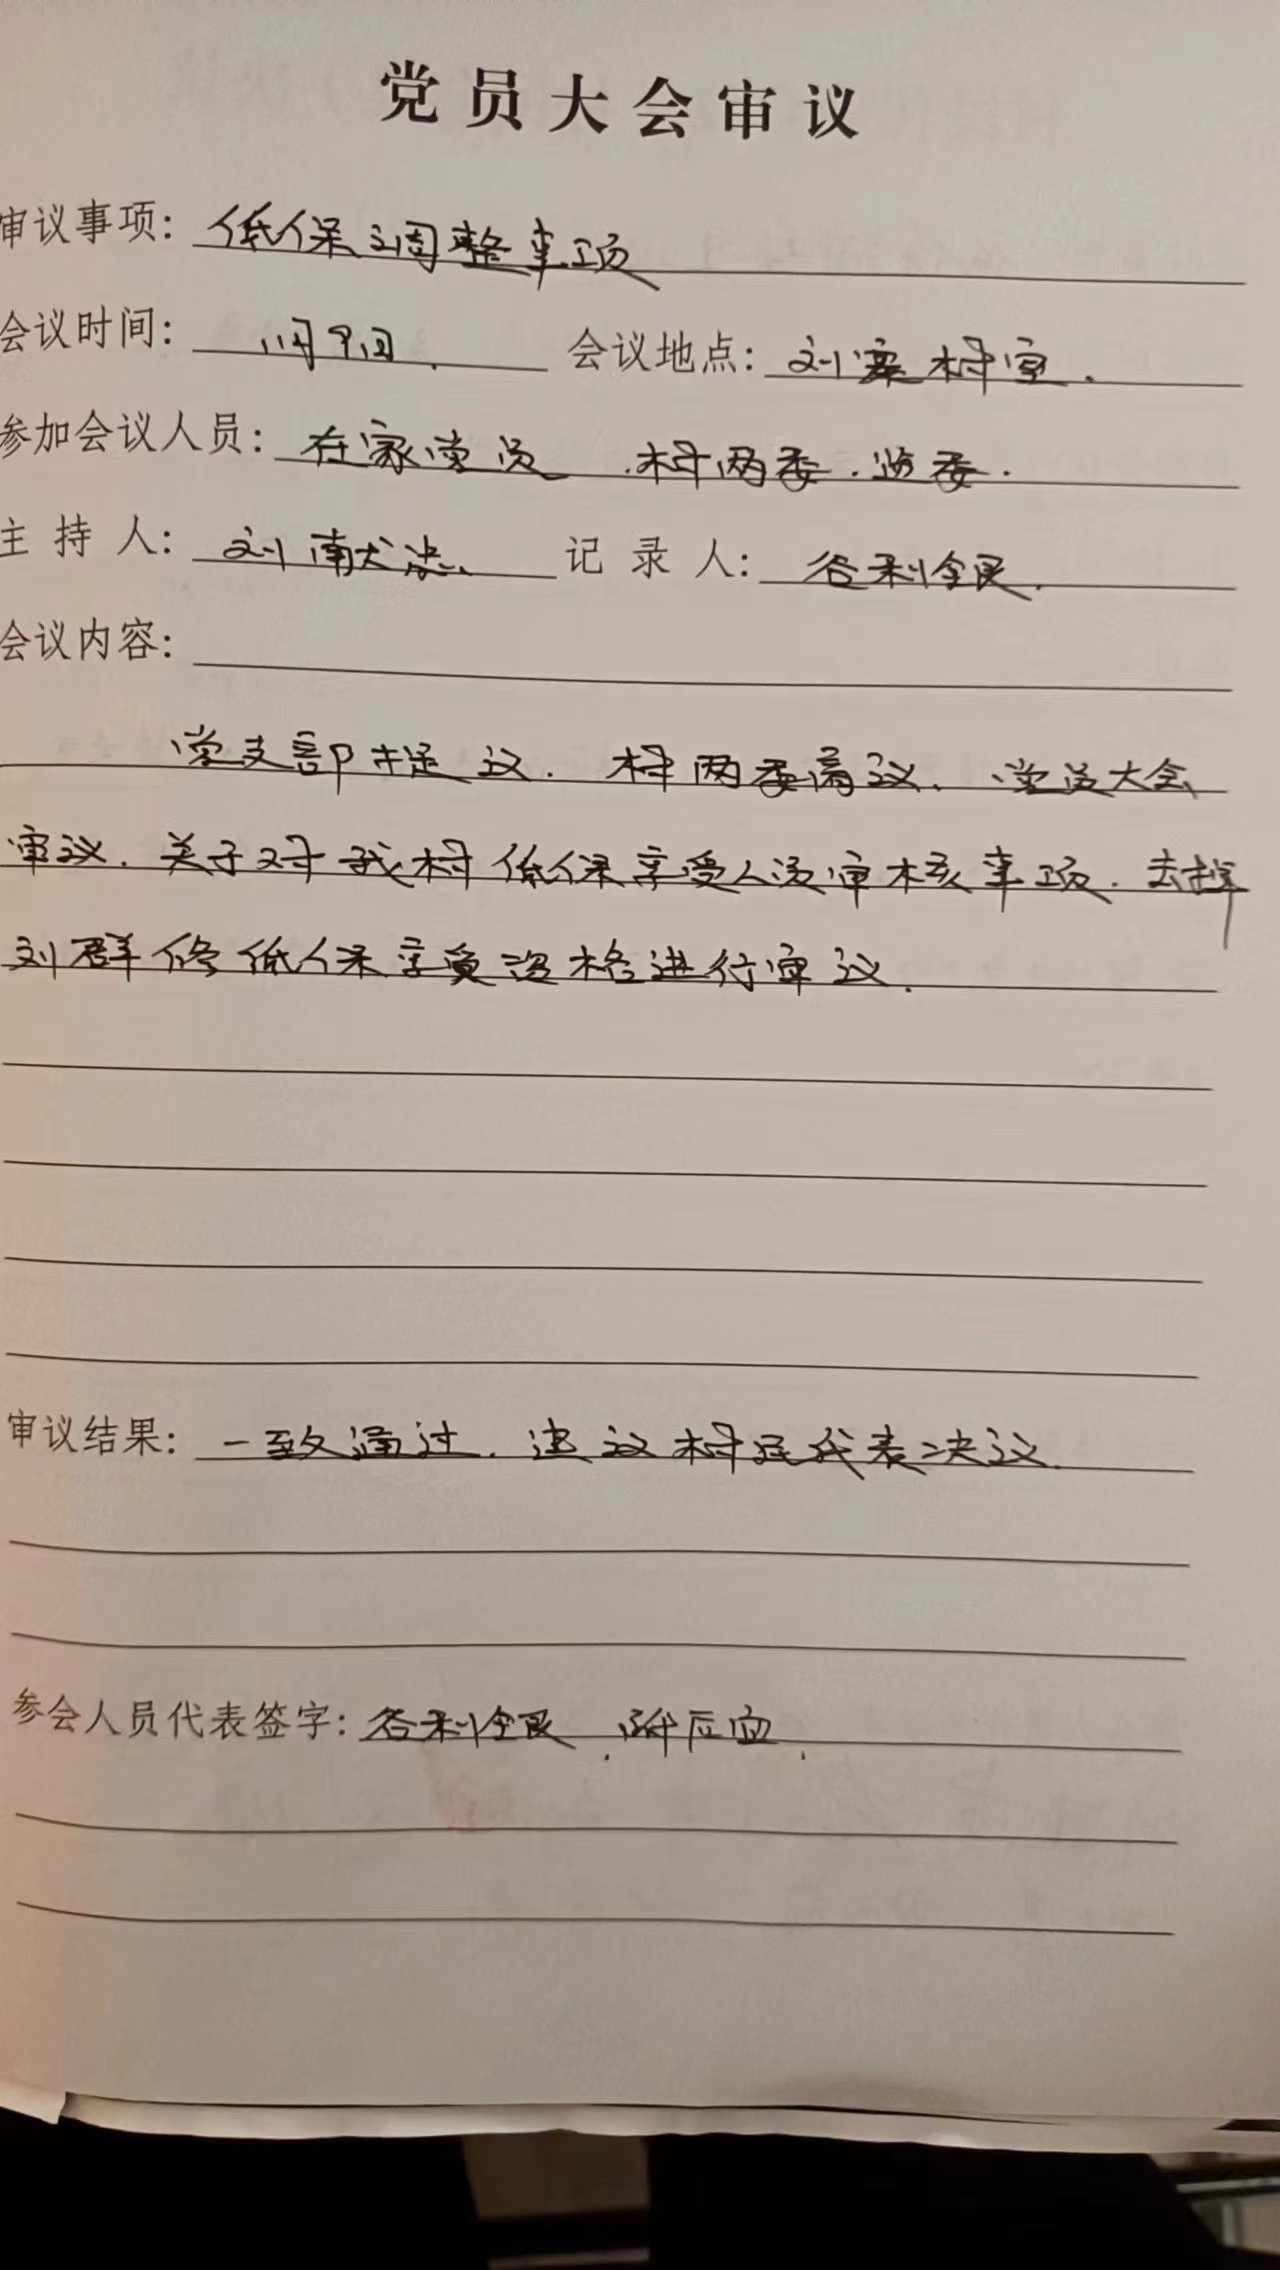 党员大会审议
审议事项：低保调整事项
会议时间：11月9日. 会议地点：刘寨村室.
参加会议人员：在家党员 .村两委.监委.
主持人：刘献忠. 记录人：谷利全民.
会议内容：
党支部提议. 村两委商议. 党员大会
审议. 关于对我村低保享受人员审核事项. 去掉
刘群修低保享受资格进行审议.
审议结果：一致通过. 建议村民代表决议.
参会人员代表签字：谷利全民